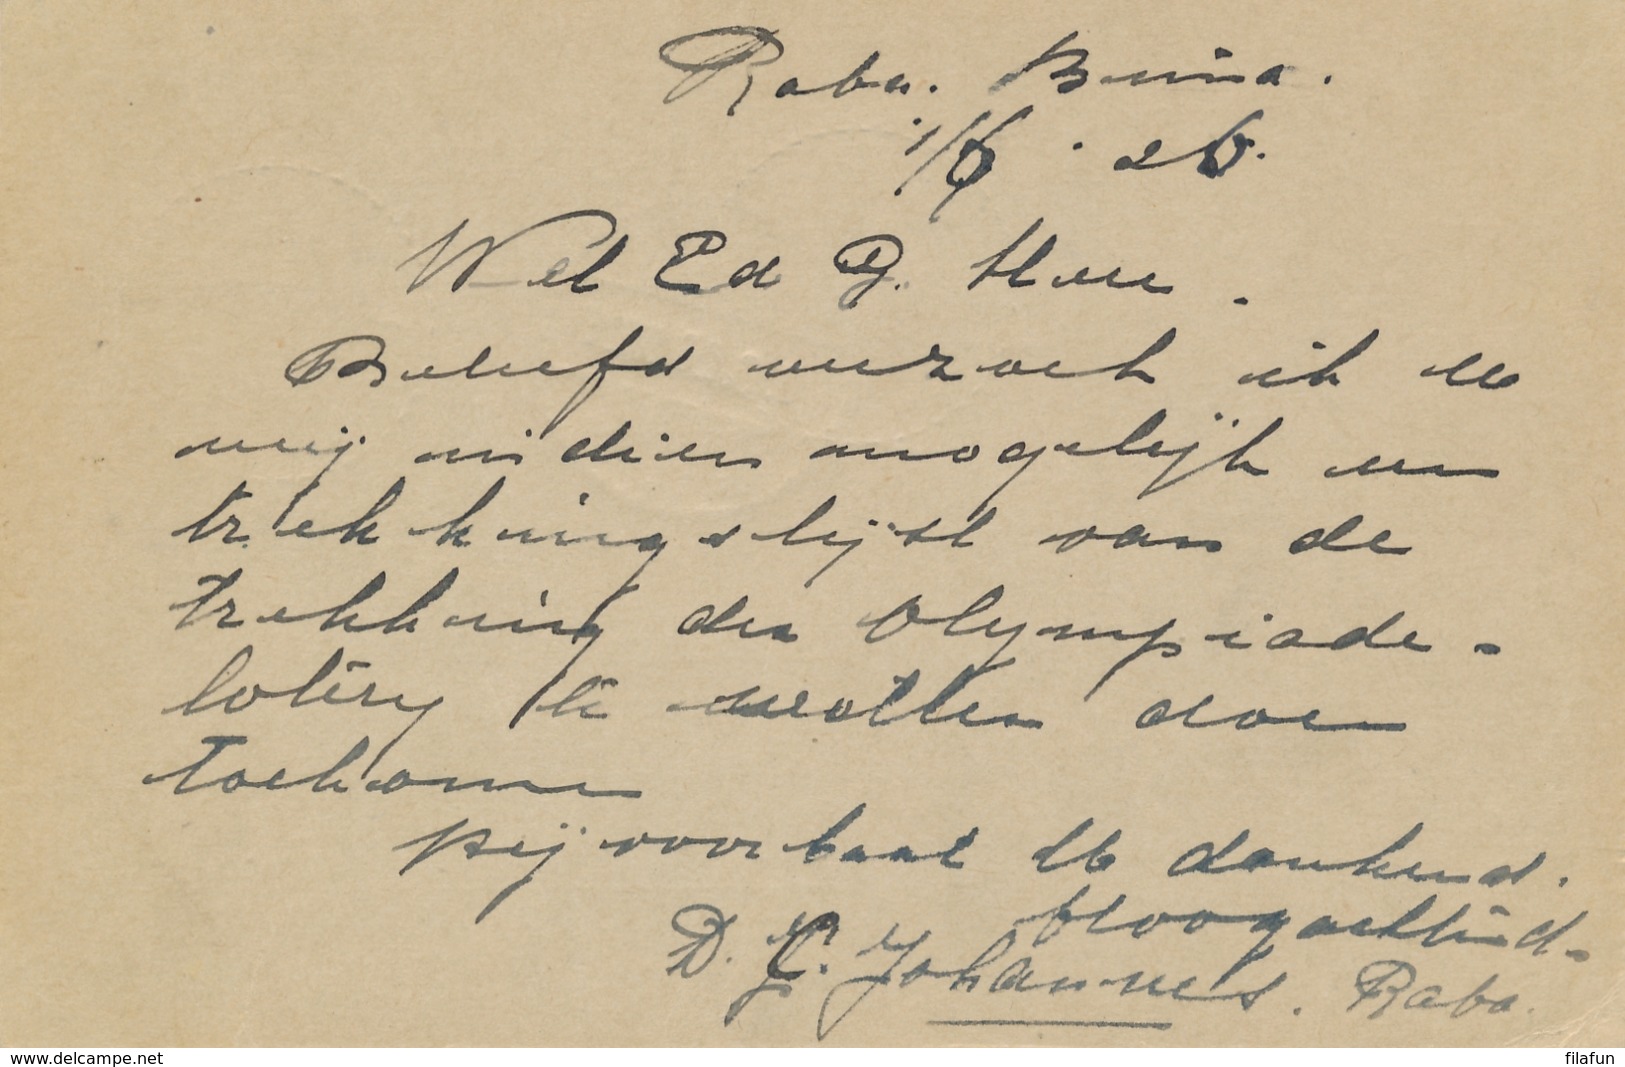 Raba. Bima.
1/6. 26.
Wel Ed G. Heer.
Beleefd verzoek ik U
mij indien mogelijk een
trekkingslijst van de
trekking der Olympiade-
lotery te willen doen
toekomen
bij voorbaat U dankend.
Hoogachtend.
D. Johannes. Raba.
www.delcampe.net
filafun